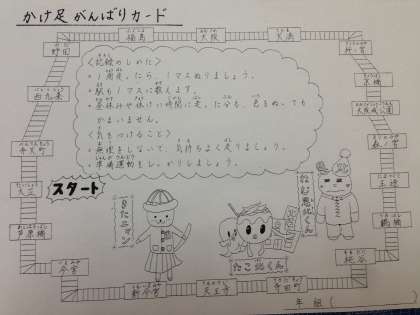 かけ足がんばりカード
福島
大阪
天満
野田
桜ノ宮
京橋
西九条
弁天町
森ノ宮
大正
玉造
芦原橋
鶴橋
今宮
桃谷
新今宮
天王寺
寺田町
<記録のしかた>
・1周走ったら、1マスぬりましょう。
・駅も1マスに数えます。
・昼休みや休けい時間に走った分も、色をぬっても
かまいません。
<気をつけること>
・無理をしないで、気持ちよく走りましょう。
・準備運動をしっかりしましょう。
スタート
きたニャン
たこ北くん
年 組( )